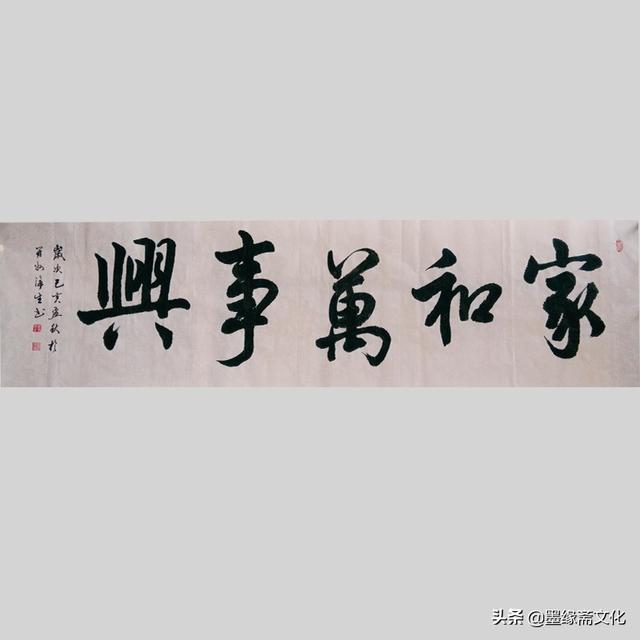 家和萬事興
歲次己亥孟秋於
海生書
头条 @墨缘斋文化